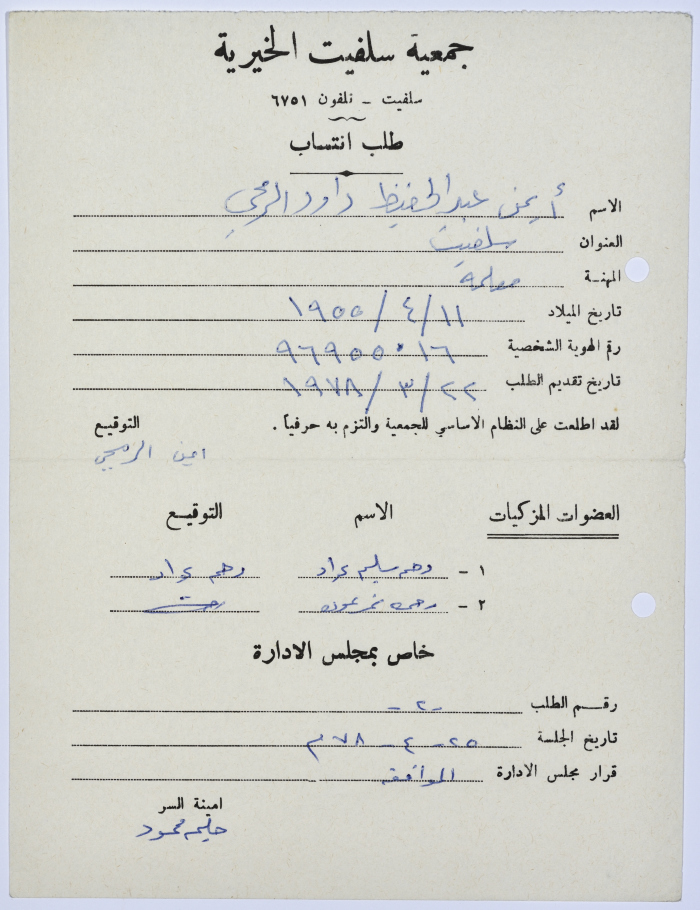 جمعية سلفيت الخيرية
سلفيت - تلفون ٦٧٥١
طلب انتساب
الاسم أيمن عبد الحفيظ داود الرمحي
العنوان سلفيت
المهنـة معلمة
تاريخ الميلاد ١١/٤/١٩٥٥
رقم الهوية الشخصية ٩٦٩٥٥٠١٦
تاريخ تقديم الطلب ٢٢/٣/١٩٧٨
لقد اطلعت على النظام الاساسي للجمعية والتزم به حرفياً . التوقيع
ايمن الرمحي
العضوات المزكيات الاسم التوقيع
١ - سليم
٢ -
خاص بمجلس الادارة
رقم الطلب -٢-
تاريخ الجلسة ٢٥-٤-٧٨م
قرار مجلس الادارة الموافقه
امينة السر
محمود